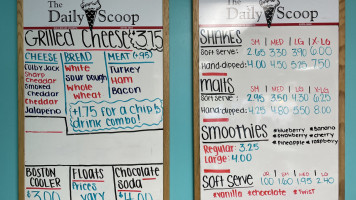 The
Daily Scoop
Grilled Cheese $3.75
CHEESE
Colby Jack
Sharp
Cheddar
Smoked
Cheddar
Cheddar
Jalapeño
BREAD
White
Sour dough
Whole
Wheat
MEAT (+.95)
Turkey
Ham
Bacon
+1.75 for a chip &
drink combo!
BOSTON
COOLER
$3.00
FLOATS
Prices
vary
Chocolate
Soda
$4.00
The
Daily Scoop
SHAKES
SM | MED | LG | X-LG
Soft serve: 2.65 3.30 3.90 6.00
Hand-dipped: 4.00 4.50 5.25 7.50
Malts
SM | MED | LG | X-LG
Soft serve: 2.95 3.50 4.30 6.25
Hand-dipped: 4.25 4.80 5.50 8.00
Smoothies
Regular: 3.25
Large: 4.00
*blueberry *banana
*strawberry *cherry
*pineapple *raspberry
Soft serve
SM MED LG
1.00 1.40 1.95 2.40
*vanilla *chocolate *twist